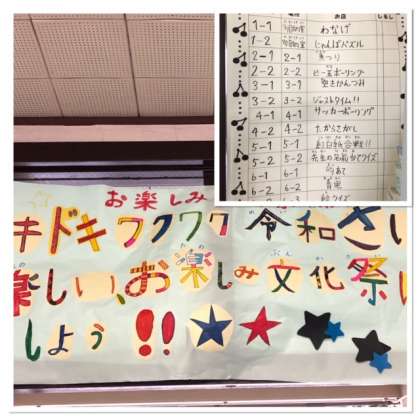 お楽しみ
キドキワクワク令和さい
楽しい、お楽しみ文化祭
しよう!!
お店
1-1 わなげ
1-2 じゃんぼパズル
2-1 2-1 まつり
2-2 2-2 ビー玉ボーリング
3-1 3-1 空きかんつみ
3-2 3-2 ジャストタイム!!
4-1 4-1 サッカーボーリング
4-2 4-2 たからさがし
5-1 5-1 紅白紙合戦!!
5-2 5-2 先生の名前当てクイズ
6-1 6-1 的あて
6-2 6-2
クイズ